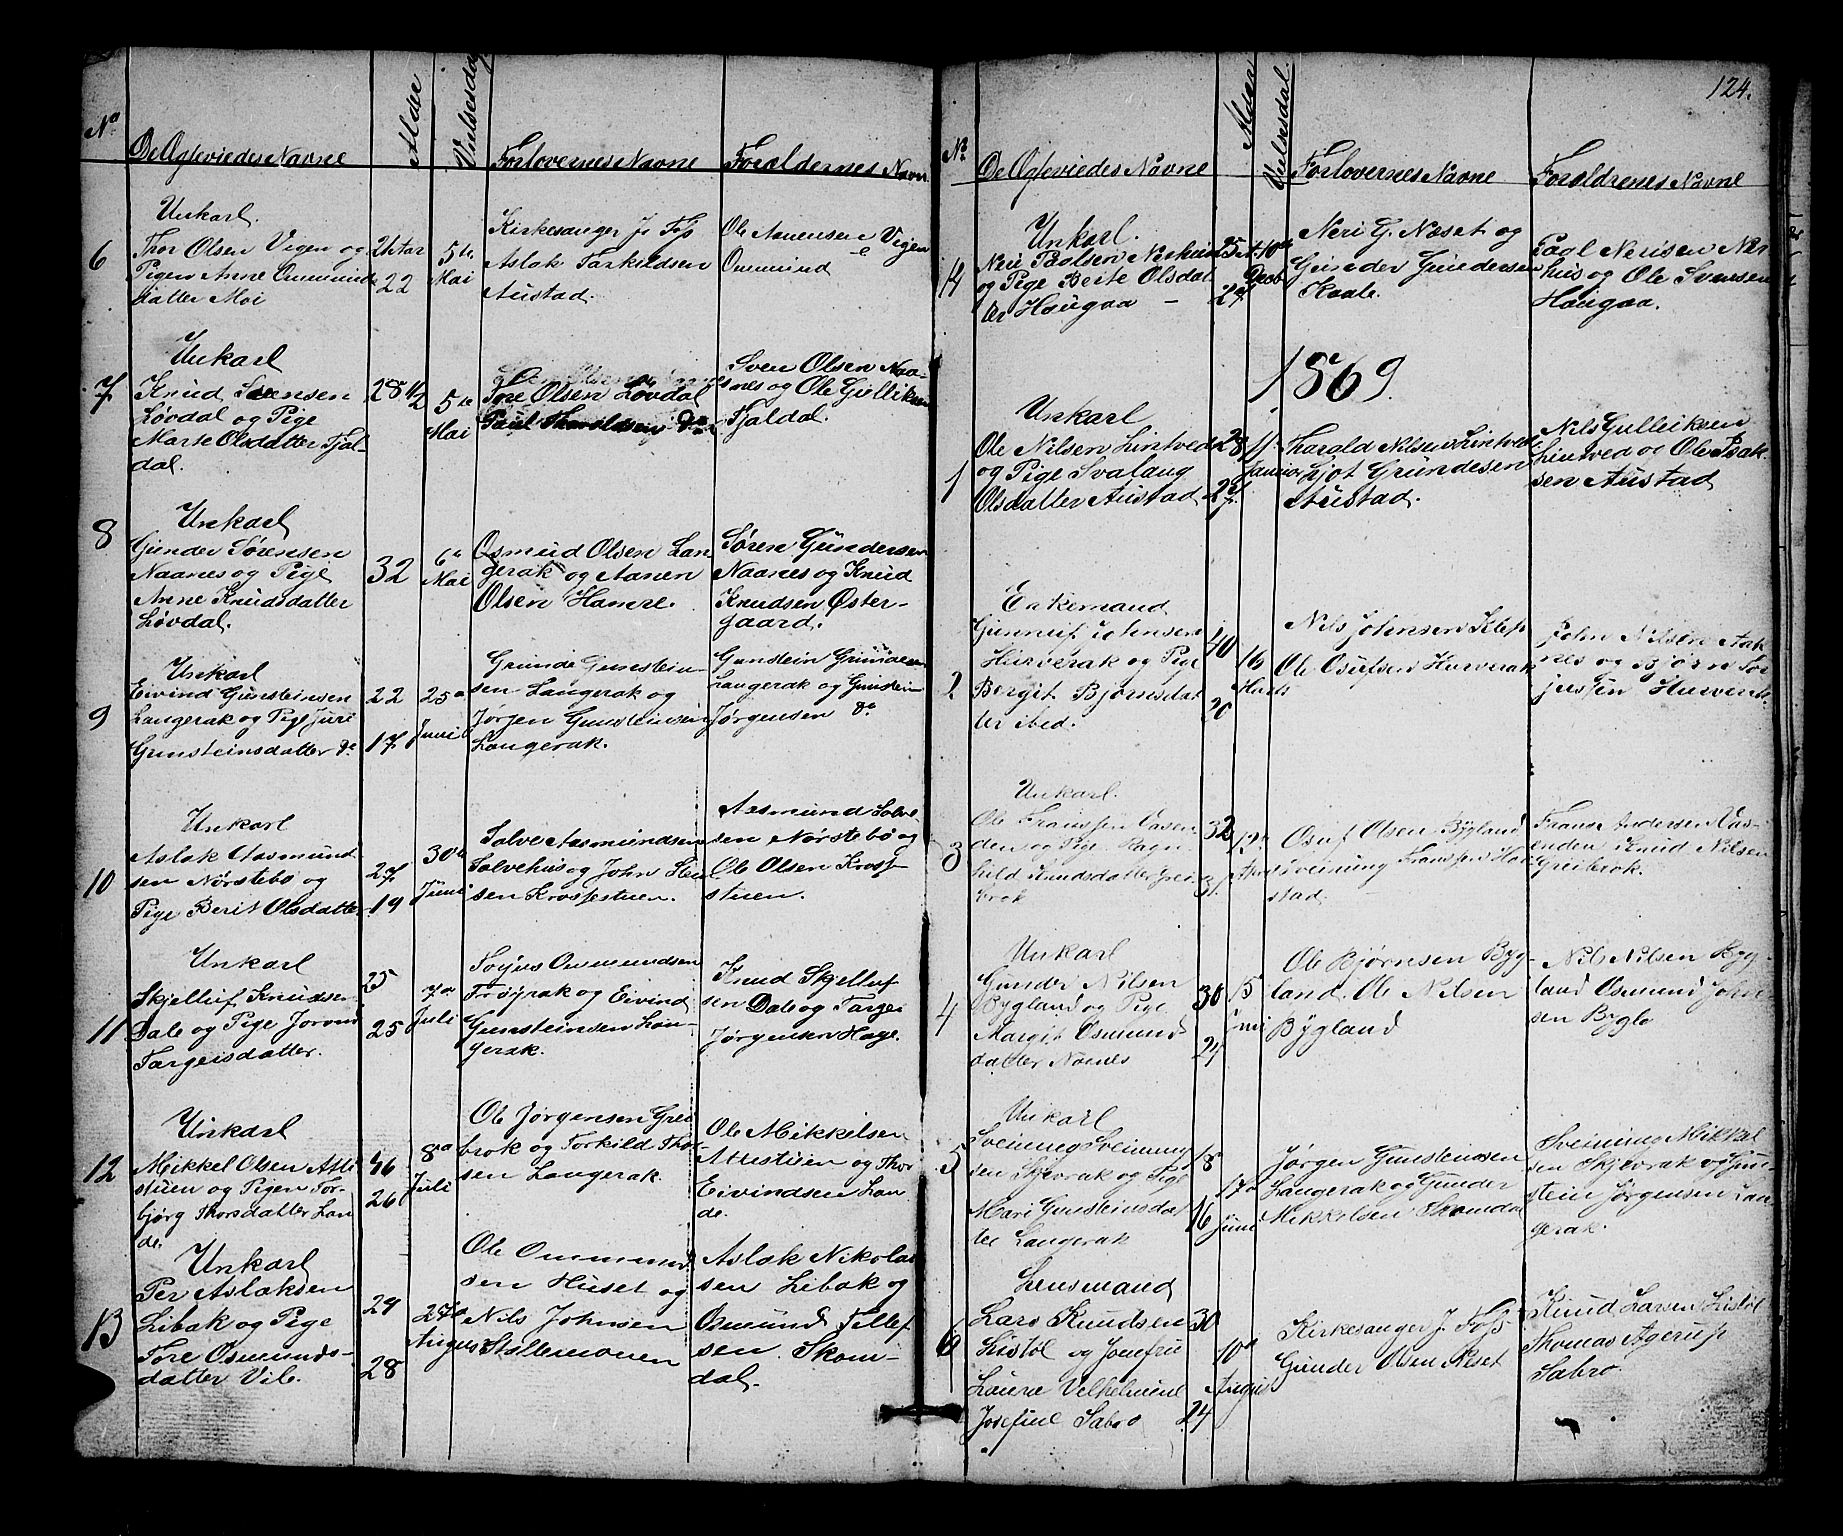 124.
No
De Ægteviedes Navne
Alder
Vielsesdag
Forlovernes Navne
Forældernes Navn
6
Unkarl.
Thor Olsen Vigen og
Pigen Anne Ommunds
datter Moi
22
5te
Mai
Kirkesanger J. Fos
Aslak Tarkildsen
Austad.
Ole Aanensen Vigen
Ommund
7
Unkarl
Knud Svensen
Løvdal og Pige
Marte Olsdatter Fjal-
dal.
28 1/2
5te
Mai
Tore Olsen Løvdal
Paul Tharaldsen do
Sven Olsen Naa-
nes og Ole Gulliksen
Fjaldal.
8
Unkarl
Gunder Sørensen
Naanes og Pige
Anne Knudsdatter
Løvdal.
32
6te
Mai
Osmud Olsen Lan
gerak og Aanen
Olsen Hamre.
Søren Gundersen
Naanes og Knud
Knudsen Øster-
gaard.
9
Unkarl
Eivind Gunsteinsen
Langerak og Pige Juri
Gunsteinsdatter do
22
17
25de
Juni
Grunde Gunstein-
sen Langerak og
Jørgen Gunsteinsen
Langerak.
Gunstein Grundesen
Langerak og Gunstein
Jørgensen do
10
Unkarl
Aslak Aasmund
sen Nørstebø og
Pige Berit Olsdatter
27
19
30te
Juni
Salve Aasmundsen
Salvehus og John
sen Krossestuen.
Aasmund Salve
sen Nørstebø og
Ole Olsen Kross
stuen.
11
Unkarl
Skjelluf Knudsen
Dale og Pige Jorond
Targeisdatter.
25
25
7de
Juli
Ommundsen
Frøyrak og Eivind
Gunsteinsen Lan-
gerak.
Knud Skjelluf
sen Dale og Targe
Jørgensen Hage.
12
Unkarl
Mikkel Olsen Atti
stuen og Pigen Tor-
bjørg Thorsdatter Lan
de.
46
26
8de
Juli
Ole Jørgensen Grei
brok og Torkild Thor-
sen Langerak.
Ole Mikkelsen
Attestuen og Thor
Eivindsen Lan-
de.
13
Unkarl
Per Aslaksen
Libak og Pige
Tore Osmunds-
datter Vik.
29
28
27de
August
Ole Ommund
sen Huset og
Nils Johnsen
Stallemoren
Aslak Nikolai
sen Libak og
Osmund Tellef
sen Skom-
dal.
No
De Ægteviedes Navne
Alder
Vielsesdal.
Forlovernes Navne
Forældrenes Navne
14
Unkarl.
Neri Paalsen Nerhus
og Pige Berte Olsdat
ter Haugaa -
25
24
10de
Decb
Neri G. Næset og
Gunder Gundersen
Kaale.
Paal Nerisen Ner
hus og Ole Svensen
Haugaa.
1869.
1
Unkarl
Ole Nilsen Lintved
og Pige Svalaug
Olsdatter Austad
28
27
Januar
Harald Nilsen Lintved
Ljot Grundesen
Austad.
Nils Gulliksen
Lintved og Ole Isak
sen Austad
2
Enkemand
Gunnuf Johnsen
Hurverak og Pige
Bergit Bjørnsdat
ter ibed.
40
20
16
Marts
Nils Johnsen Klep
Ole Osufsen Hurverak
John Nilsen Aak
nes og Bjørn Tor
jussen Hurverak
3
Unkarl.
Ole Franssen Vasen
den og Pige Ragn
hild Knudsdatter Grei
brok
32
31
Osuf Olsen Bygland
Sveinung Franssen Har
stad.
Frans Andersen Vas-
enden Knud Nilsen
Greibrok.
4
Unkarl
Gunder Nilsen
Bygland og Pige
Margit Osmund
datter Naanes
30
24
15
Juni
Ole Bjørnsen Byg-
land. Ole Nilsen
Bygland
Nils Nilsen Byg-
land Osmund John
sen Bygl
5
Unkarl
Sveinung Sveinung
sen Skjevrak og Pige
Mari Gunsteinsdat
ter Langerak
18
16
17de
Juni
Jørgen Gunsteinsen
Langerak og Gunder
Mikkelsen Skomdal
Sveinung Mikkel
sen Skjevrak og Gun
stein Jørgensen Lan
gerak.
6
Lensmand
Lars Knudsen
Listøl og Jomfru
Laura Velhelmine
Josefine Sabro
30
24
10de
August
Kirkesanger J. Foss
Gunder Olsen Reset
Knud Larsen Listøl
Thomas Agerup
Sabro.